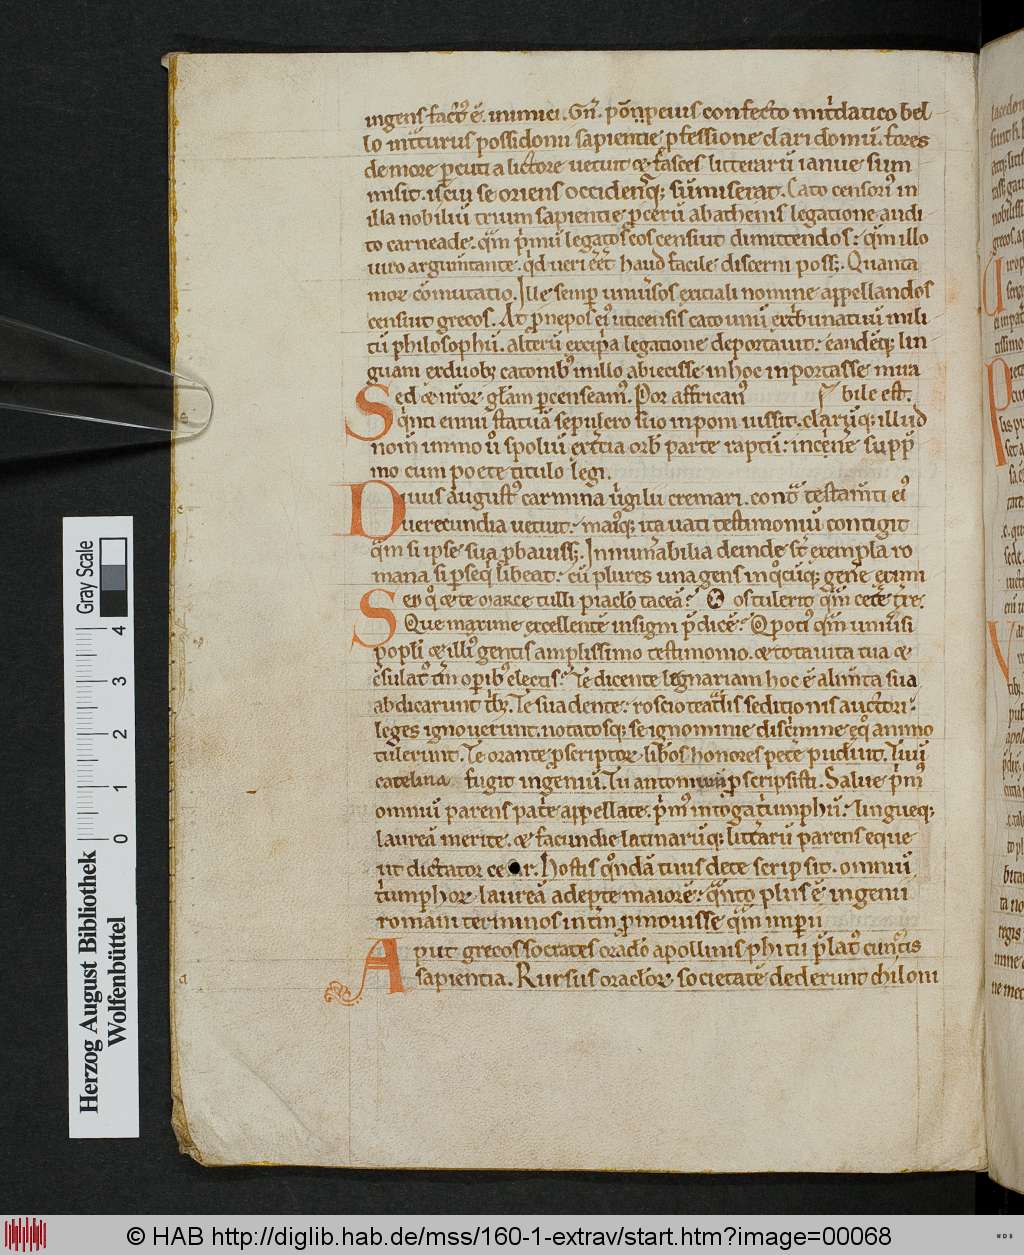 ingens fact᷒ ē. inimici. Gn̄. pōnpeius confecto mit͛datico bel
lo int͛turus possidonii sapientie ꝓfessione clari domū. fores
de more ꝑcuti a lictore uetuit ⁊ fasces litterarū ianue sum
misit. is cui se oriens occidensq; sūmiserat. Cato censori᷒ in
illa nobiliū trium sapientie ꝓcerū ab athenis legatione audi
to carneade. qͣm p̍mū legatos eos censuit dimittendos: qͣm illo
uiro argum̄tante. qͥd ueri eēt haud facile discerni poss;. Quanta
morū cōmutatio. Ille semꝑ uniūsos exciali nomine appellandos
censuit grecos. At ꝓnepos ei᷒ uticensis cato unū ex tͥbunatu mili
tū philosophū. alterū ex cipͥa legatione deportauit. eandēq; lin
guam ex duob; catonib᷒ in illo abiecisse in hoc inportasse mira
Sed ⁊ n̄ror gl̄am ꝑcenseam᷒. Por affrican᷒ bile est.
qͥnti ennii statuā sepulcro suo inponi iussit. clarūq; illud
nom̄ immo ū spoliū ex t̄cia orb᷒ parte raptū: in cin̄e supp̄
mo cum poete titulo legi.
Diuus august᷒ carmina uͥgilii cremari. cont͛ testam̄ti ei᷒
uerecundia uetuit: mai᷒q; ita uati testimoniū contigit
qͣm si ipse sua ꝓbauiss;. Innum̄abilia deinde st̄ exempla ro
mana si ꝑseqͥ libeat: cū plures una gens in qͦcūq; gen̄e exim
Sed qͦ ⁊ te marce tulli piaclō taceā? os tulerit qͣm cet̄e t̄re.
Que maxime excellentē insigni p̄dicē? Qͦ poti᷒ qͣm uniūsi
popli ⁊ illi᷒ gentis amplissimo testimonio. ⁊ tota uita tua ⁊
c̄sulat᷒ tm̄ operib᷒ electis? Te dicente legē agrariam hoc ē alim̄ta sua
abdicarunt tͥb᷒. Te suadente: roscio teat͛lis seditionis auctori:
leges ignouerunt. notatosq; se ignominie discͥmine eqͦ animo
tulerunt. Te orante ꝓscriptor liberos honores pet̄e puduit. Tuū
catelina fugit ingeniū. Tu antoniū ꝓscripsisti. Salue p̍m᷒
omniū parens pat̍e appellate. p̍m᷒ in toga tͥumphū: lingueq;
laureā merite. ⁊ facundie latinarūq; litt̄arū parens eque
ut dictator ce ar. hostis qͦndā tuus de te scripsit. omniū
tͥumphor laureā adepte maiorē: qͣnto plus ē ingenii
romani terminos in tm̄ ꝓmouisse qͣm imperii
Aput grecos socrates oraclō apollinis phitii p̄lat᷒ cunctis
sapientia. Rursus oraclōr societatē dederunt chiloni
Gray Scale
0 1 2 3 4
Herzog August Bibliothek
Wolfenbüttel
© HAB http://diglib.hab.de/mss/160-1-extrav/start.htm?image=00068